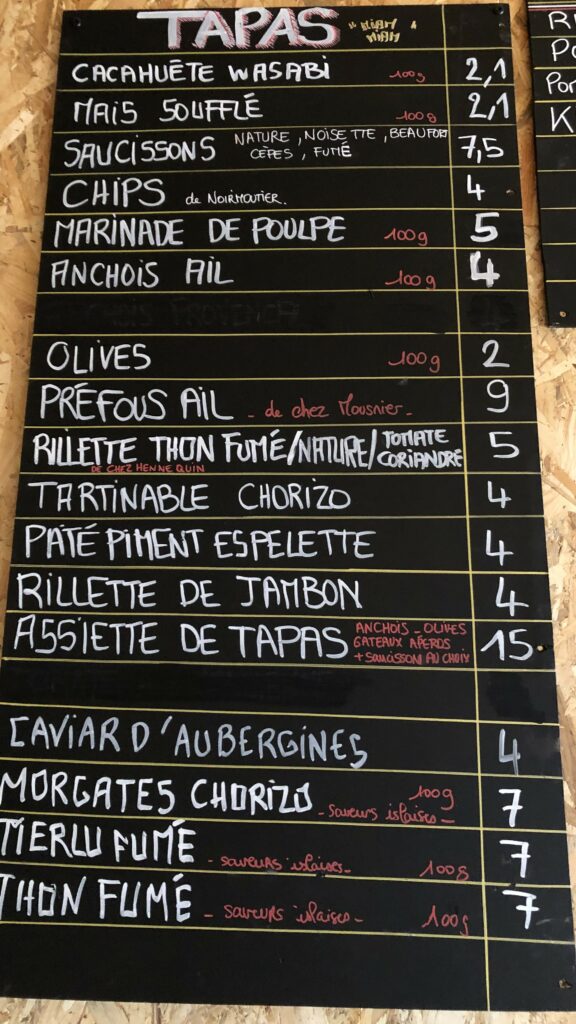 TAPAS "MIAM MIAM"
CACAHUÈTE WASABI 100g 2,1
MAIS SOUFFLÉ 100g 2,1
SAUCISSONS NATURE, NOISETTE, BEAUFORT 7,5
CÈPES, FUMÉ
CHIPS de NOIRMOUTIER. 4
MARINADE DE POULPE 100g 5
ANCHOIS AIL 100g 4
OLIVES 100g 2
PRÉFOUS AIL - de chez Mousnier - 9
RILLETTE THON FUMÉ/NATURE/TOMATE CORIANDRE 5
DE CHEZ HENNEQUIN
TARTINABLE CHORIZO 4
PATÉ PIMENT ESPELETTE 4
RILLETTE DE JAMBON 4
ASSIETTE DE TAPAS ANCHOIS - OLIVES 15
GATEAUX APÉROS
+ SAUCISSON AU CHOIX
CAVIAR D'AUBERGINES 4
MORGATES CHORIZO 100g 7
- saveurs islaises -
MERLU FUMÉ - saveurs islaises - 100g 7
THON FUMÉ - saveurs islaises - 100g 7
K